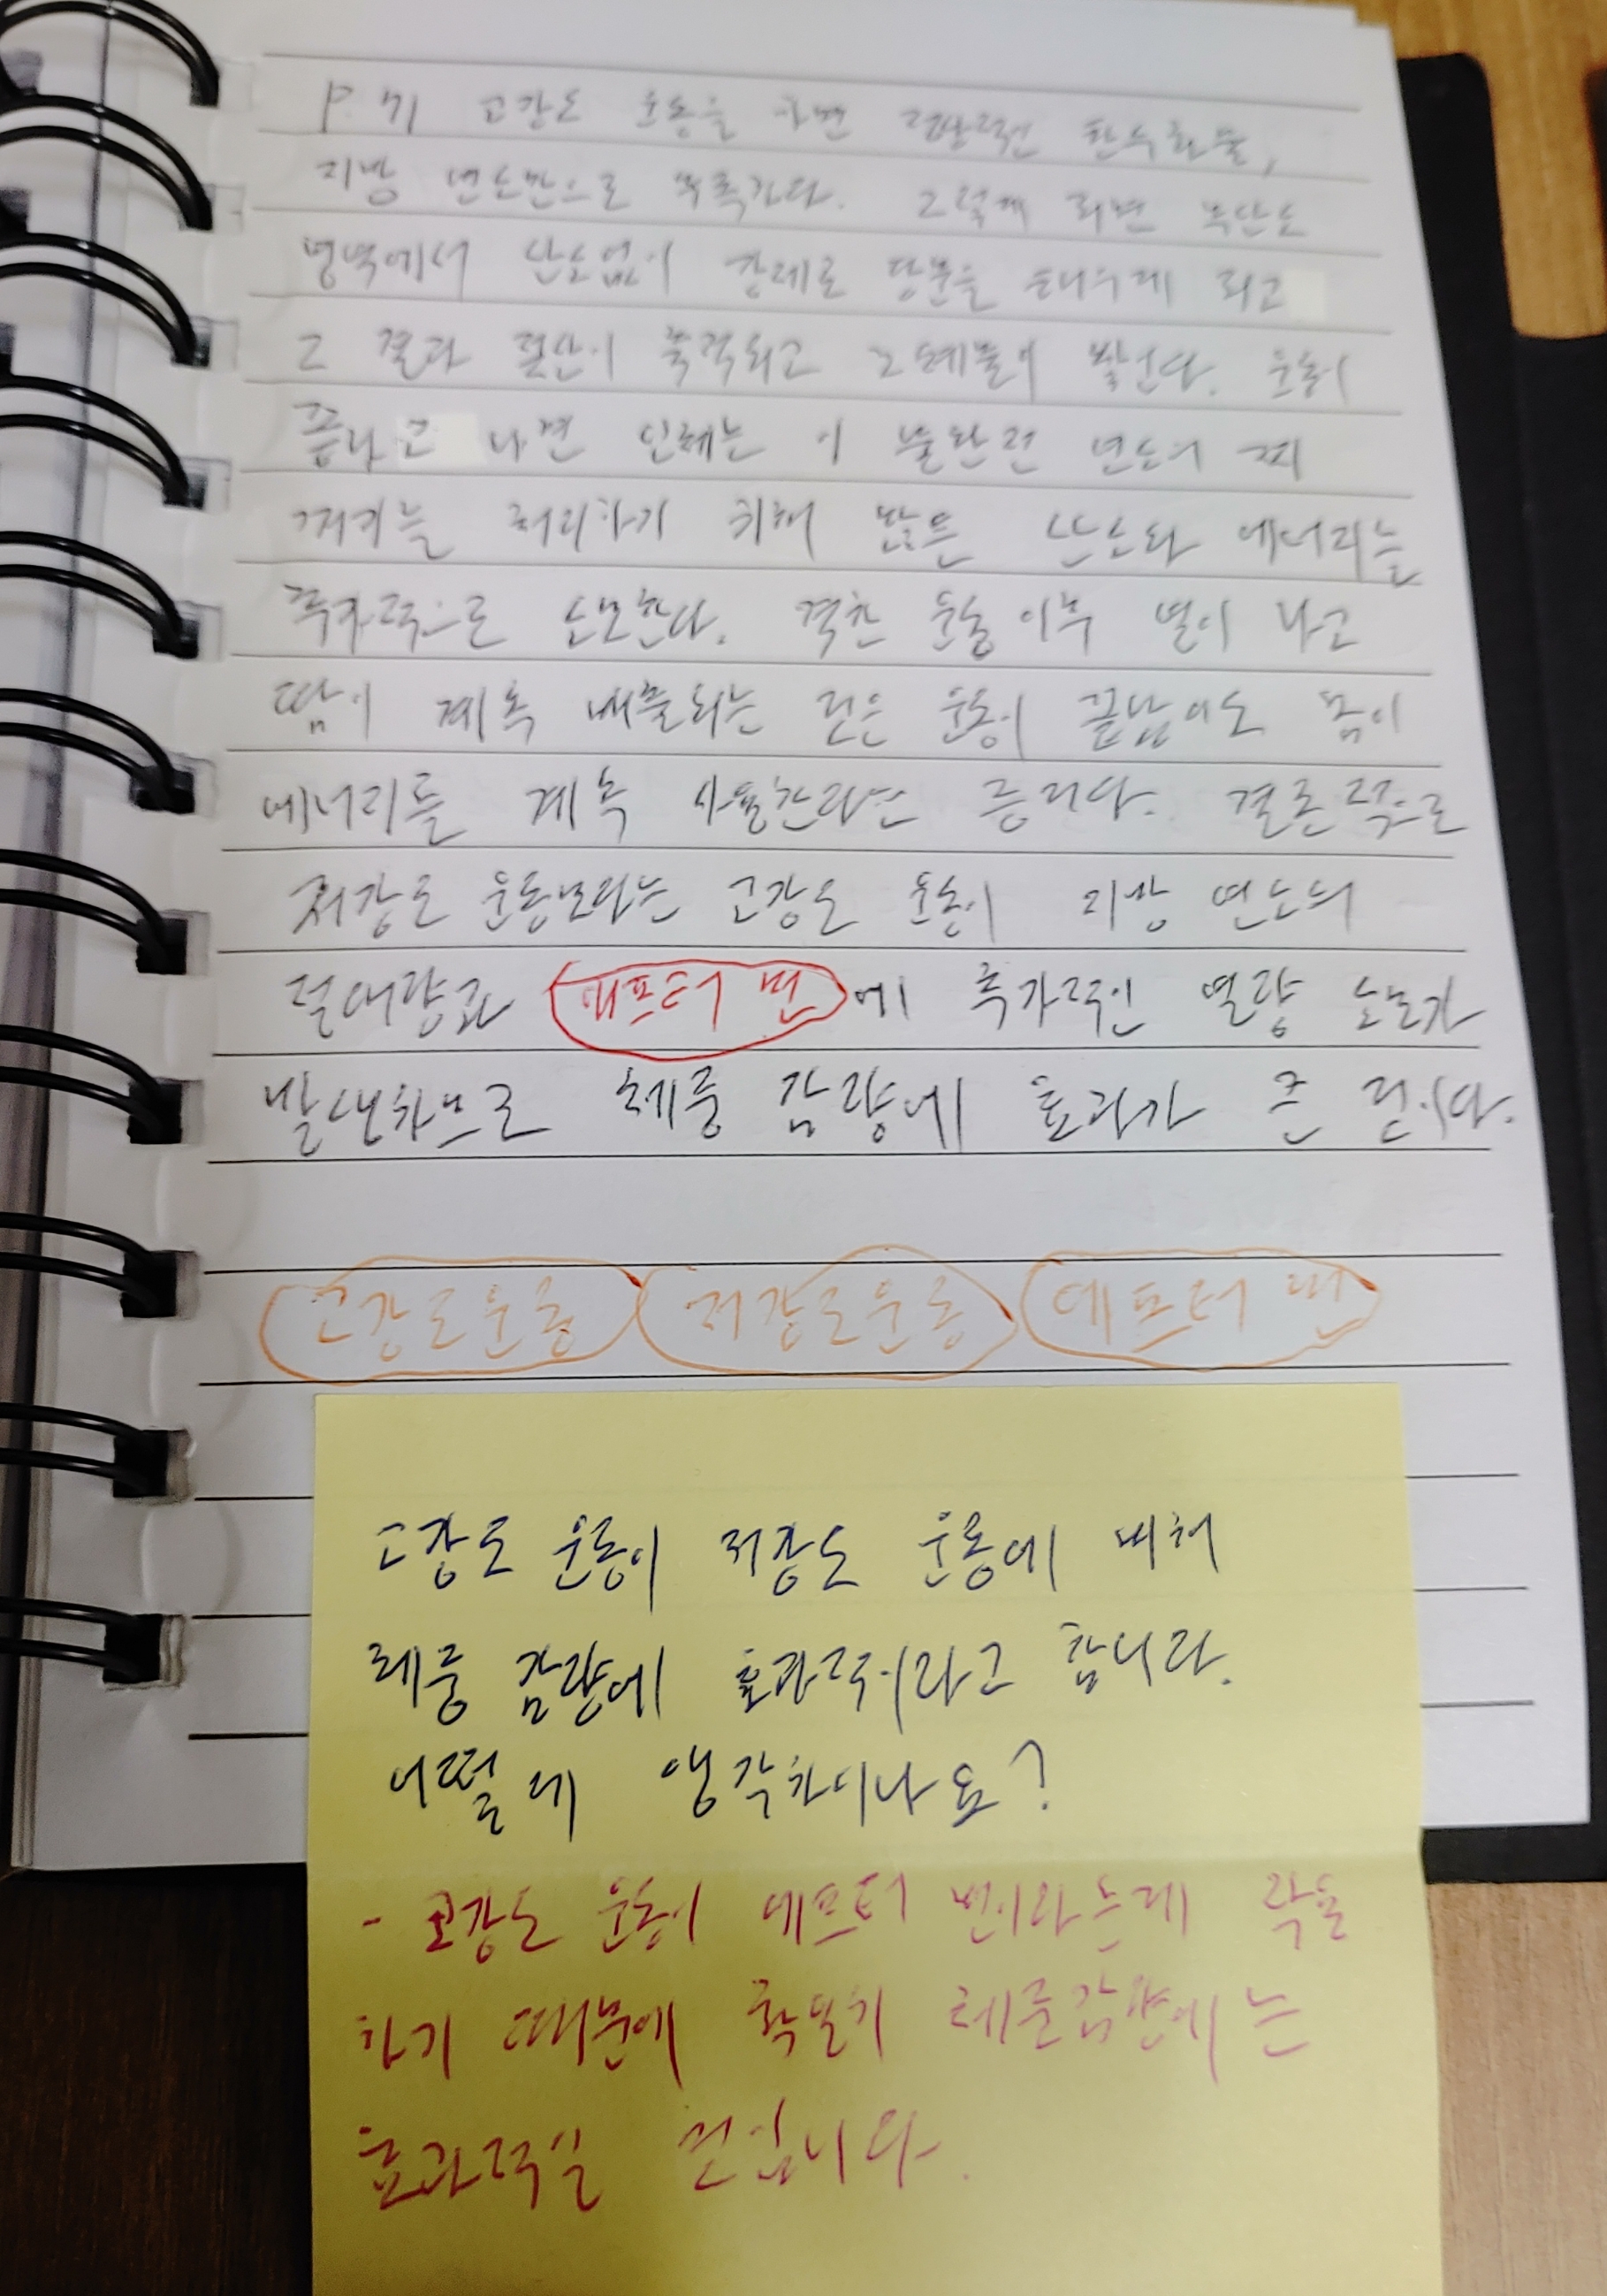 P. 71 고강도 운동을 하면 전반적인 탄수화물,
지방 연소만으로 부족하다. 그렇게 되면 무산소
영역에서 산소없이 강제로 당분을 태우게 되고
그 결과 젖산이 축적되고 노폐물이 쌓인다. 운동이
끝나고 나면 인체는 이 불완전 연소의 찌
꺼기를 처리하기 위해 많은 산소와 에너지를
추가적으로 소모한다. 격한 운동 이후 열이 나고
땀이 계속 배출되는 것은 운동이 끝났어도 몸이
에너지를 계속 사용한다라는 증거다. 결론적으로
저강도 운동보다는 고강도 운동이 지방 연소의
절대량과 에프터 번에 추가적인 열량 소모가
발생하므로 체중 감량에 효과가 큰 것이다.
고강도운동 저강도운동 에프터 번
고강도 운동이 저강도 운동에 비해
체중 감량에 효과적이라고 합니다.
어떻게 생각하시나요?
- 고강도 운동이 에프터 번이라는게 작용
하기 때문에 확실히 체중감량에는
효과적일 것입니다.